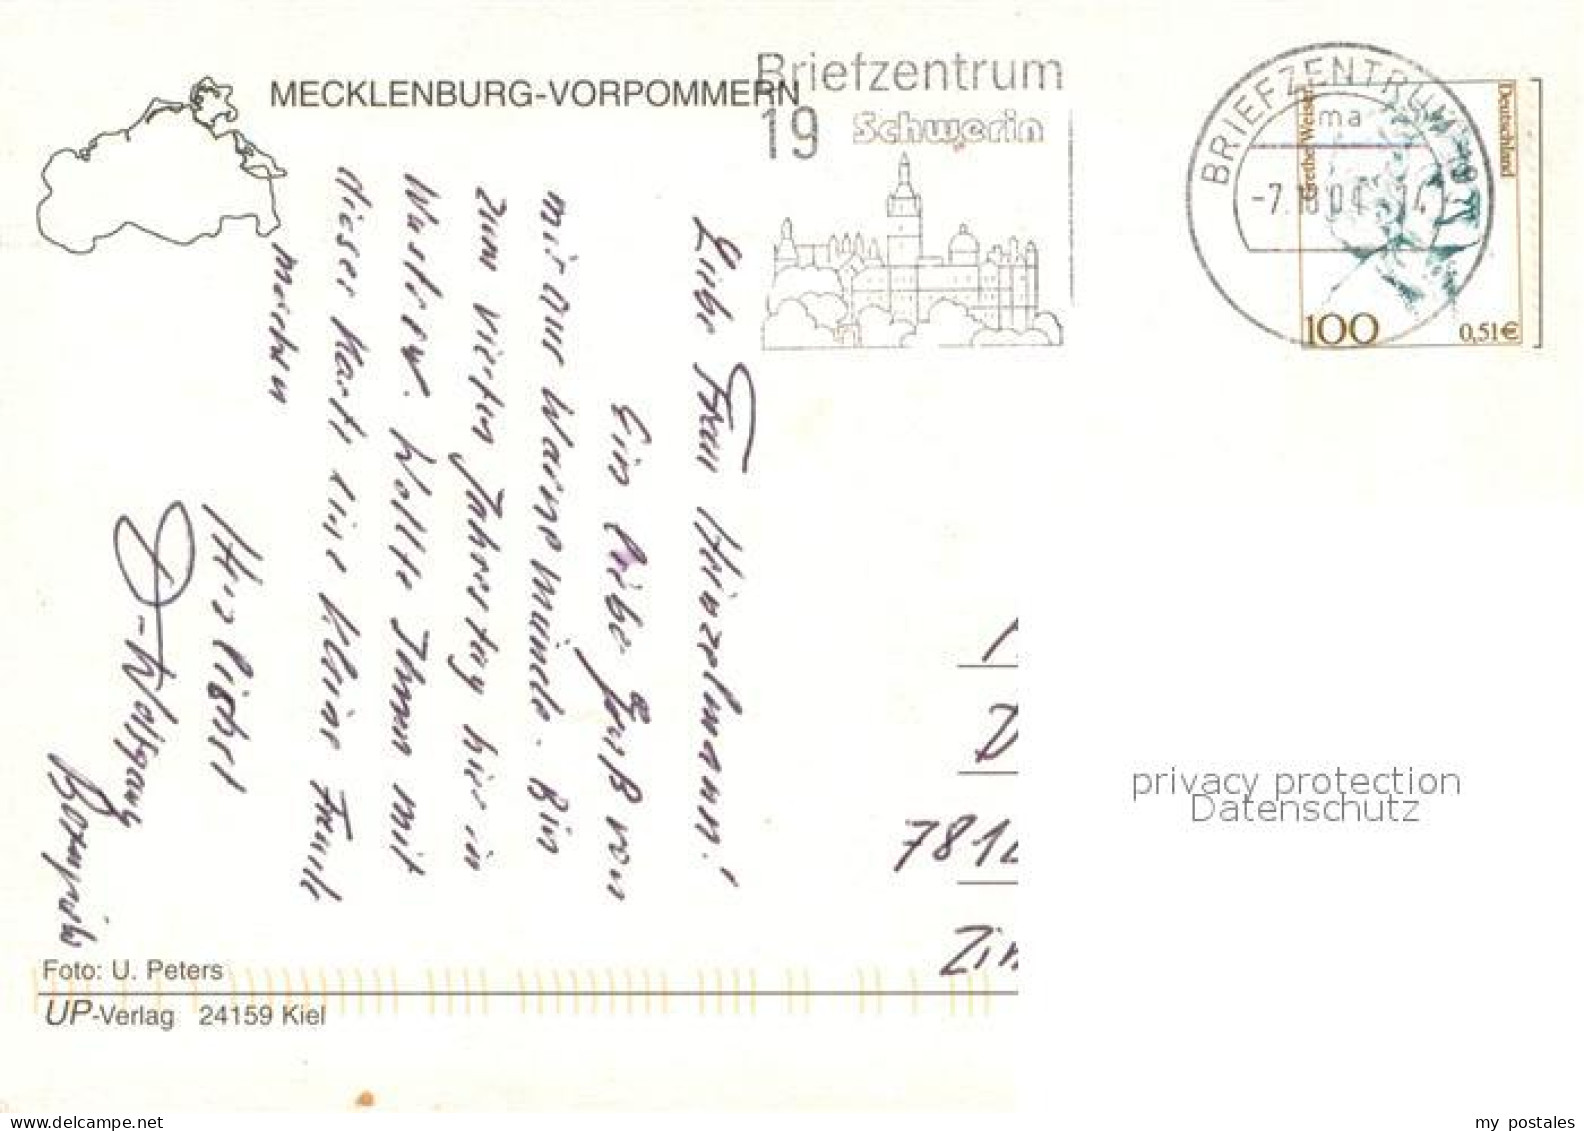 MECKLENBURG-VORPOMMERN
Briefzentrum
19 Schwerin
BRIEFZENTRUM
ma
-7.
Deutschland
Grethe Weiser
100
0,51€
Liebe Frau Heinzelmann!
Ein lieber Gruß von
mir aus Warnemünde. Bin
zum vierten Jahrestag hier in
Wustrow. Wollte Ihnen mit
dieser Karte eine kleine Freude
machen
Herzlichst
-Wolfgang
781
Zi
privacy protection
Datenschutz
Foto: U. Peters
UP-Verlag 24159 Kiel
my postales